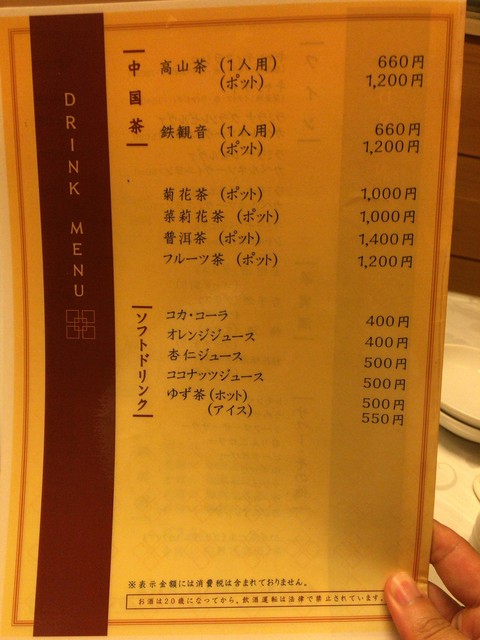 DRINK MENU
中国茶
高山茶 (1人用) 660円
(ポット) 1,200円
鉄観音 (1人用) 660円
(ポット) 1,200円
菊花茶 (ポット) 1,000円
茉莉花茶 (ポット) 1,000円
普洱茶 (ポット) 1,400円
フルーツ茶 (ポット) 1,200円
ソフトドリンク
コカ・コーラ 400円
オレンジジュース 400円
杏仁ジュース 500円
ココナッツジュース 500円
ゆず茶(ホット) 500円
(アイス) 550円
※表示金額には消費税は含まれておりません。
お酒は20歳になってから。飲酒運転は法律で禁止されています。